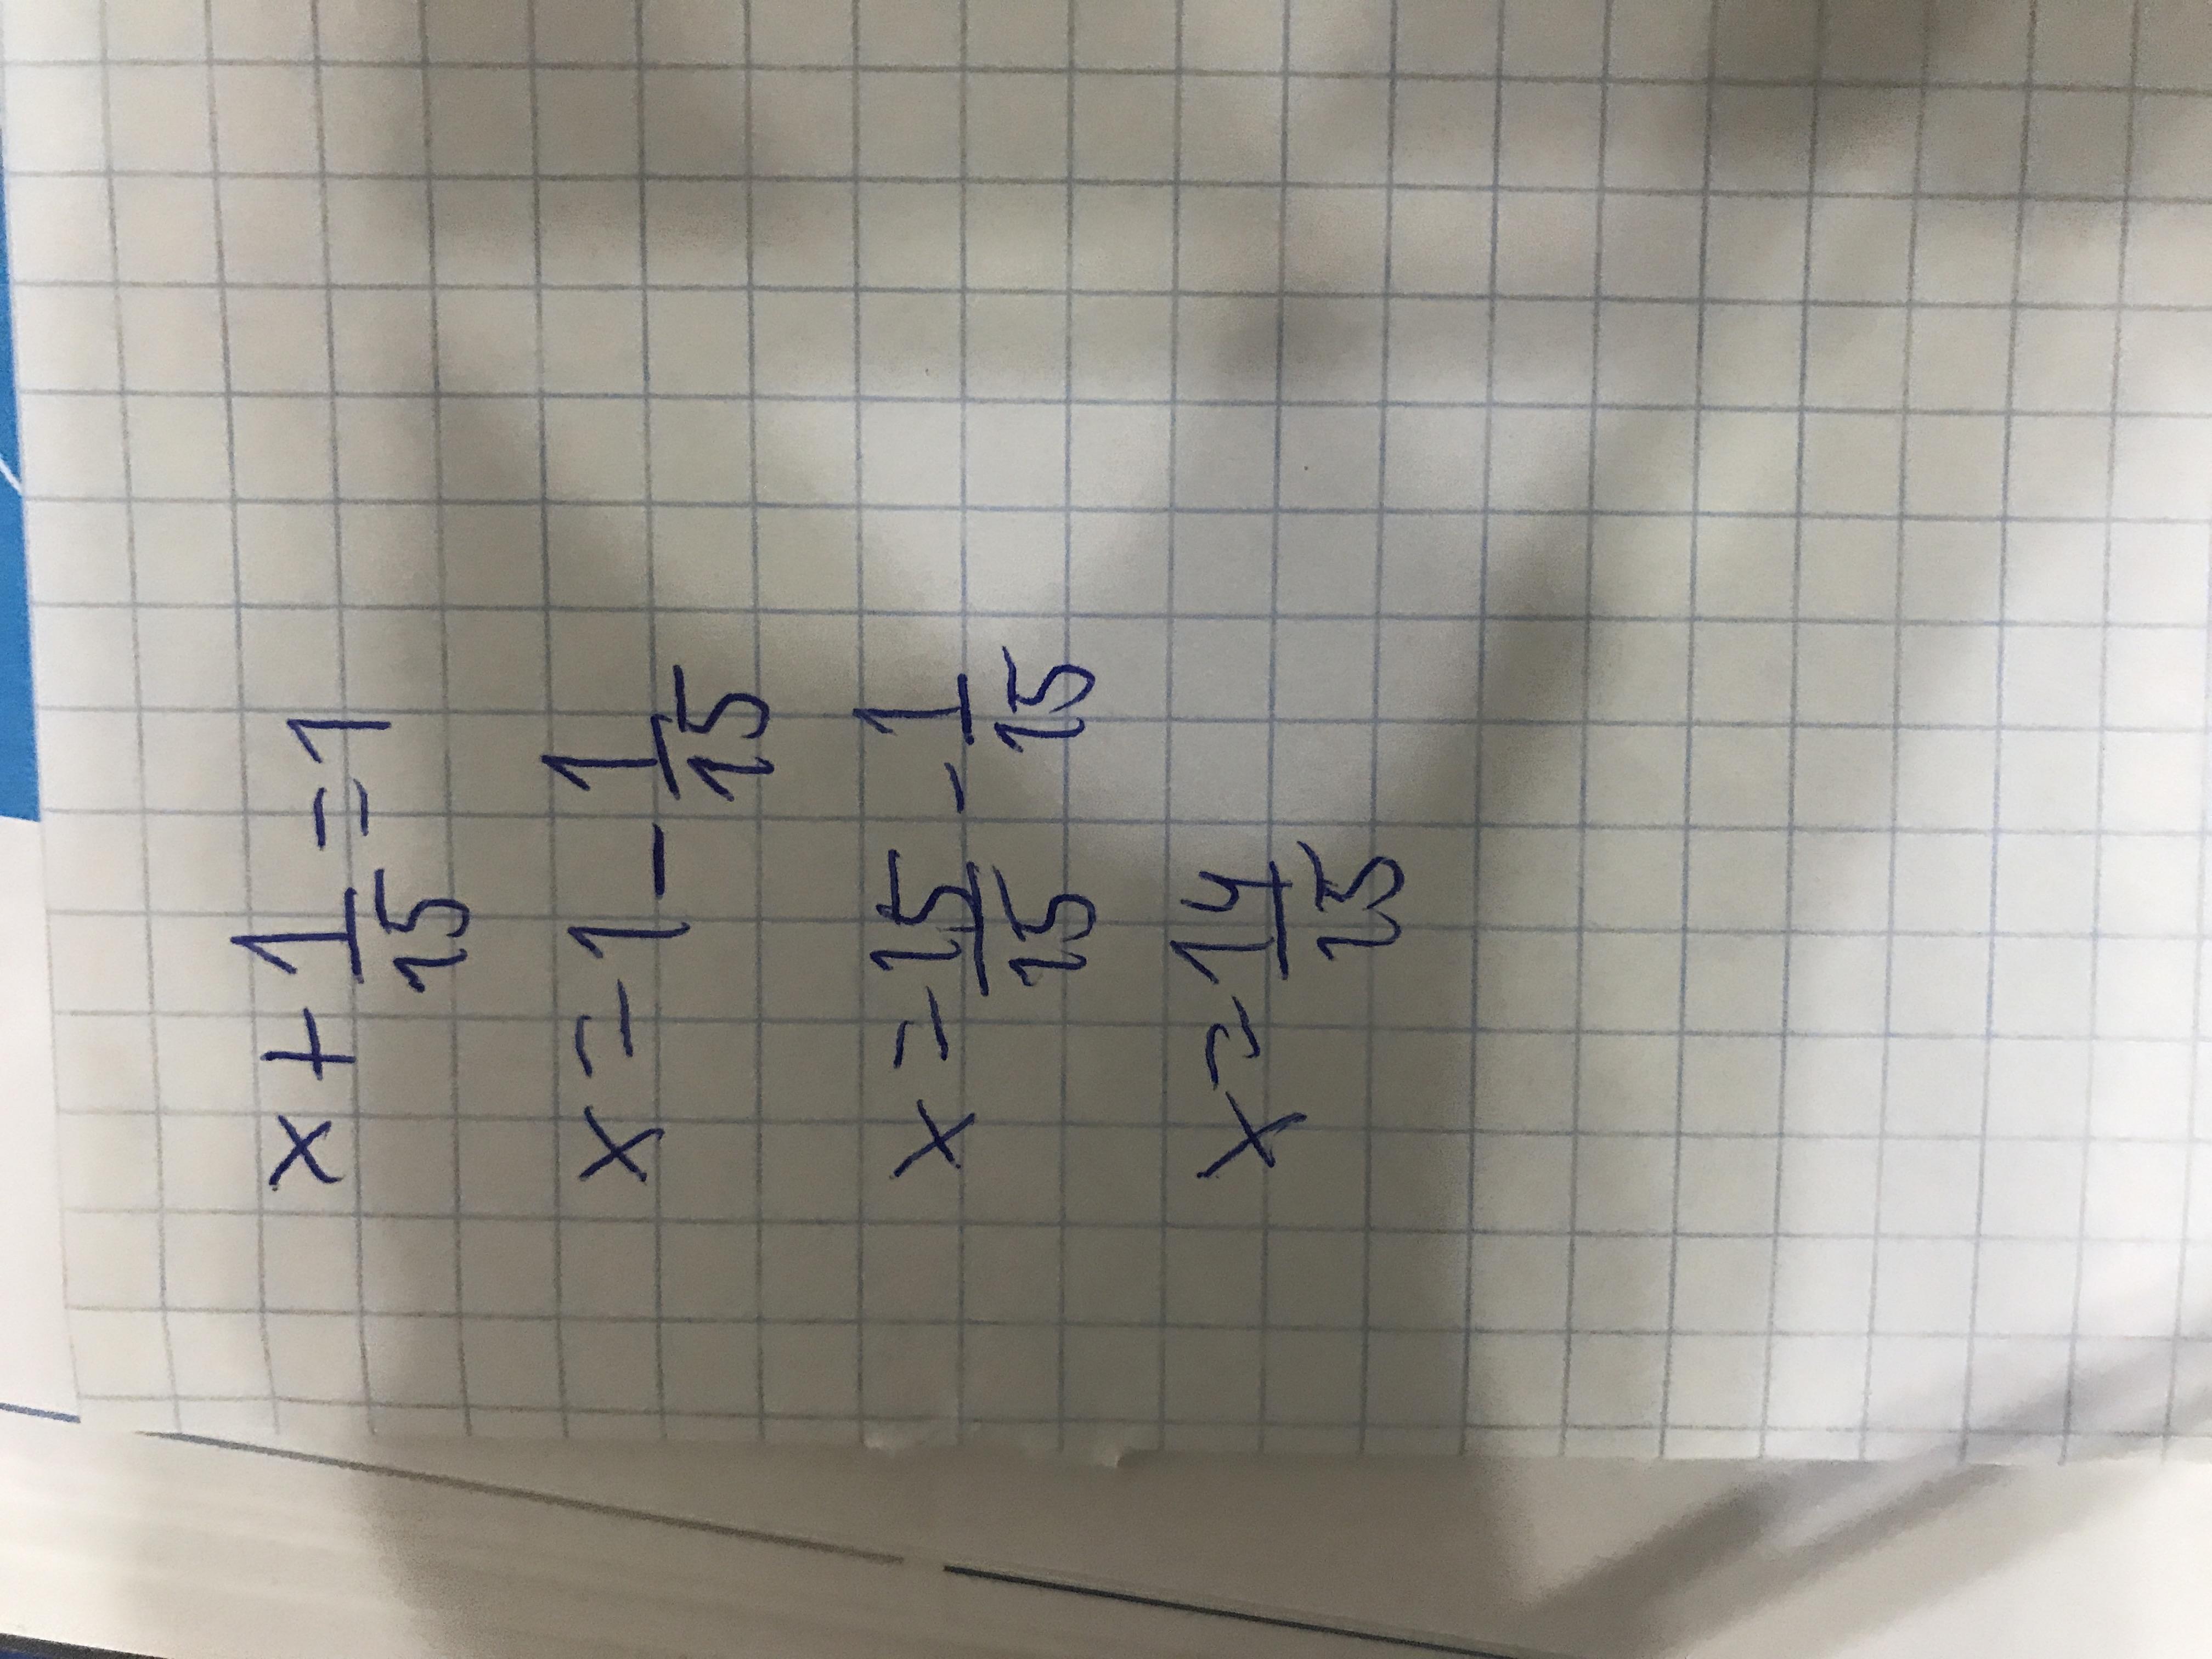 x + 1/15 = 1
x = 1 - 1/15
x = 15/15 - 1/15
x = 14/15